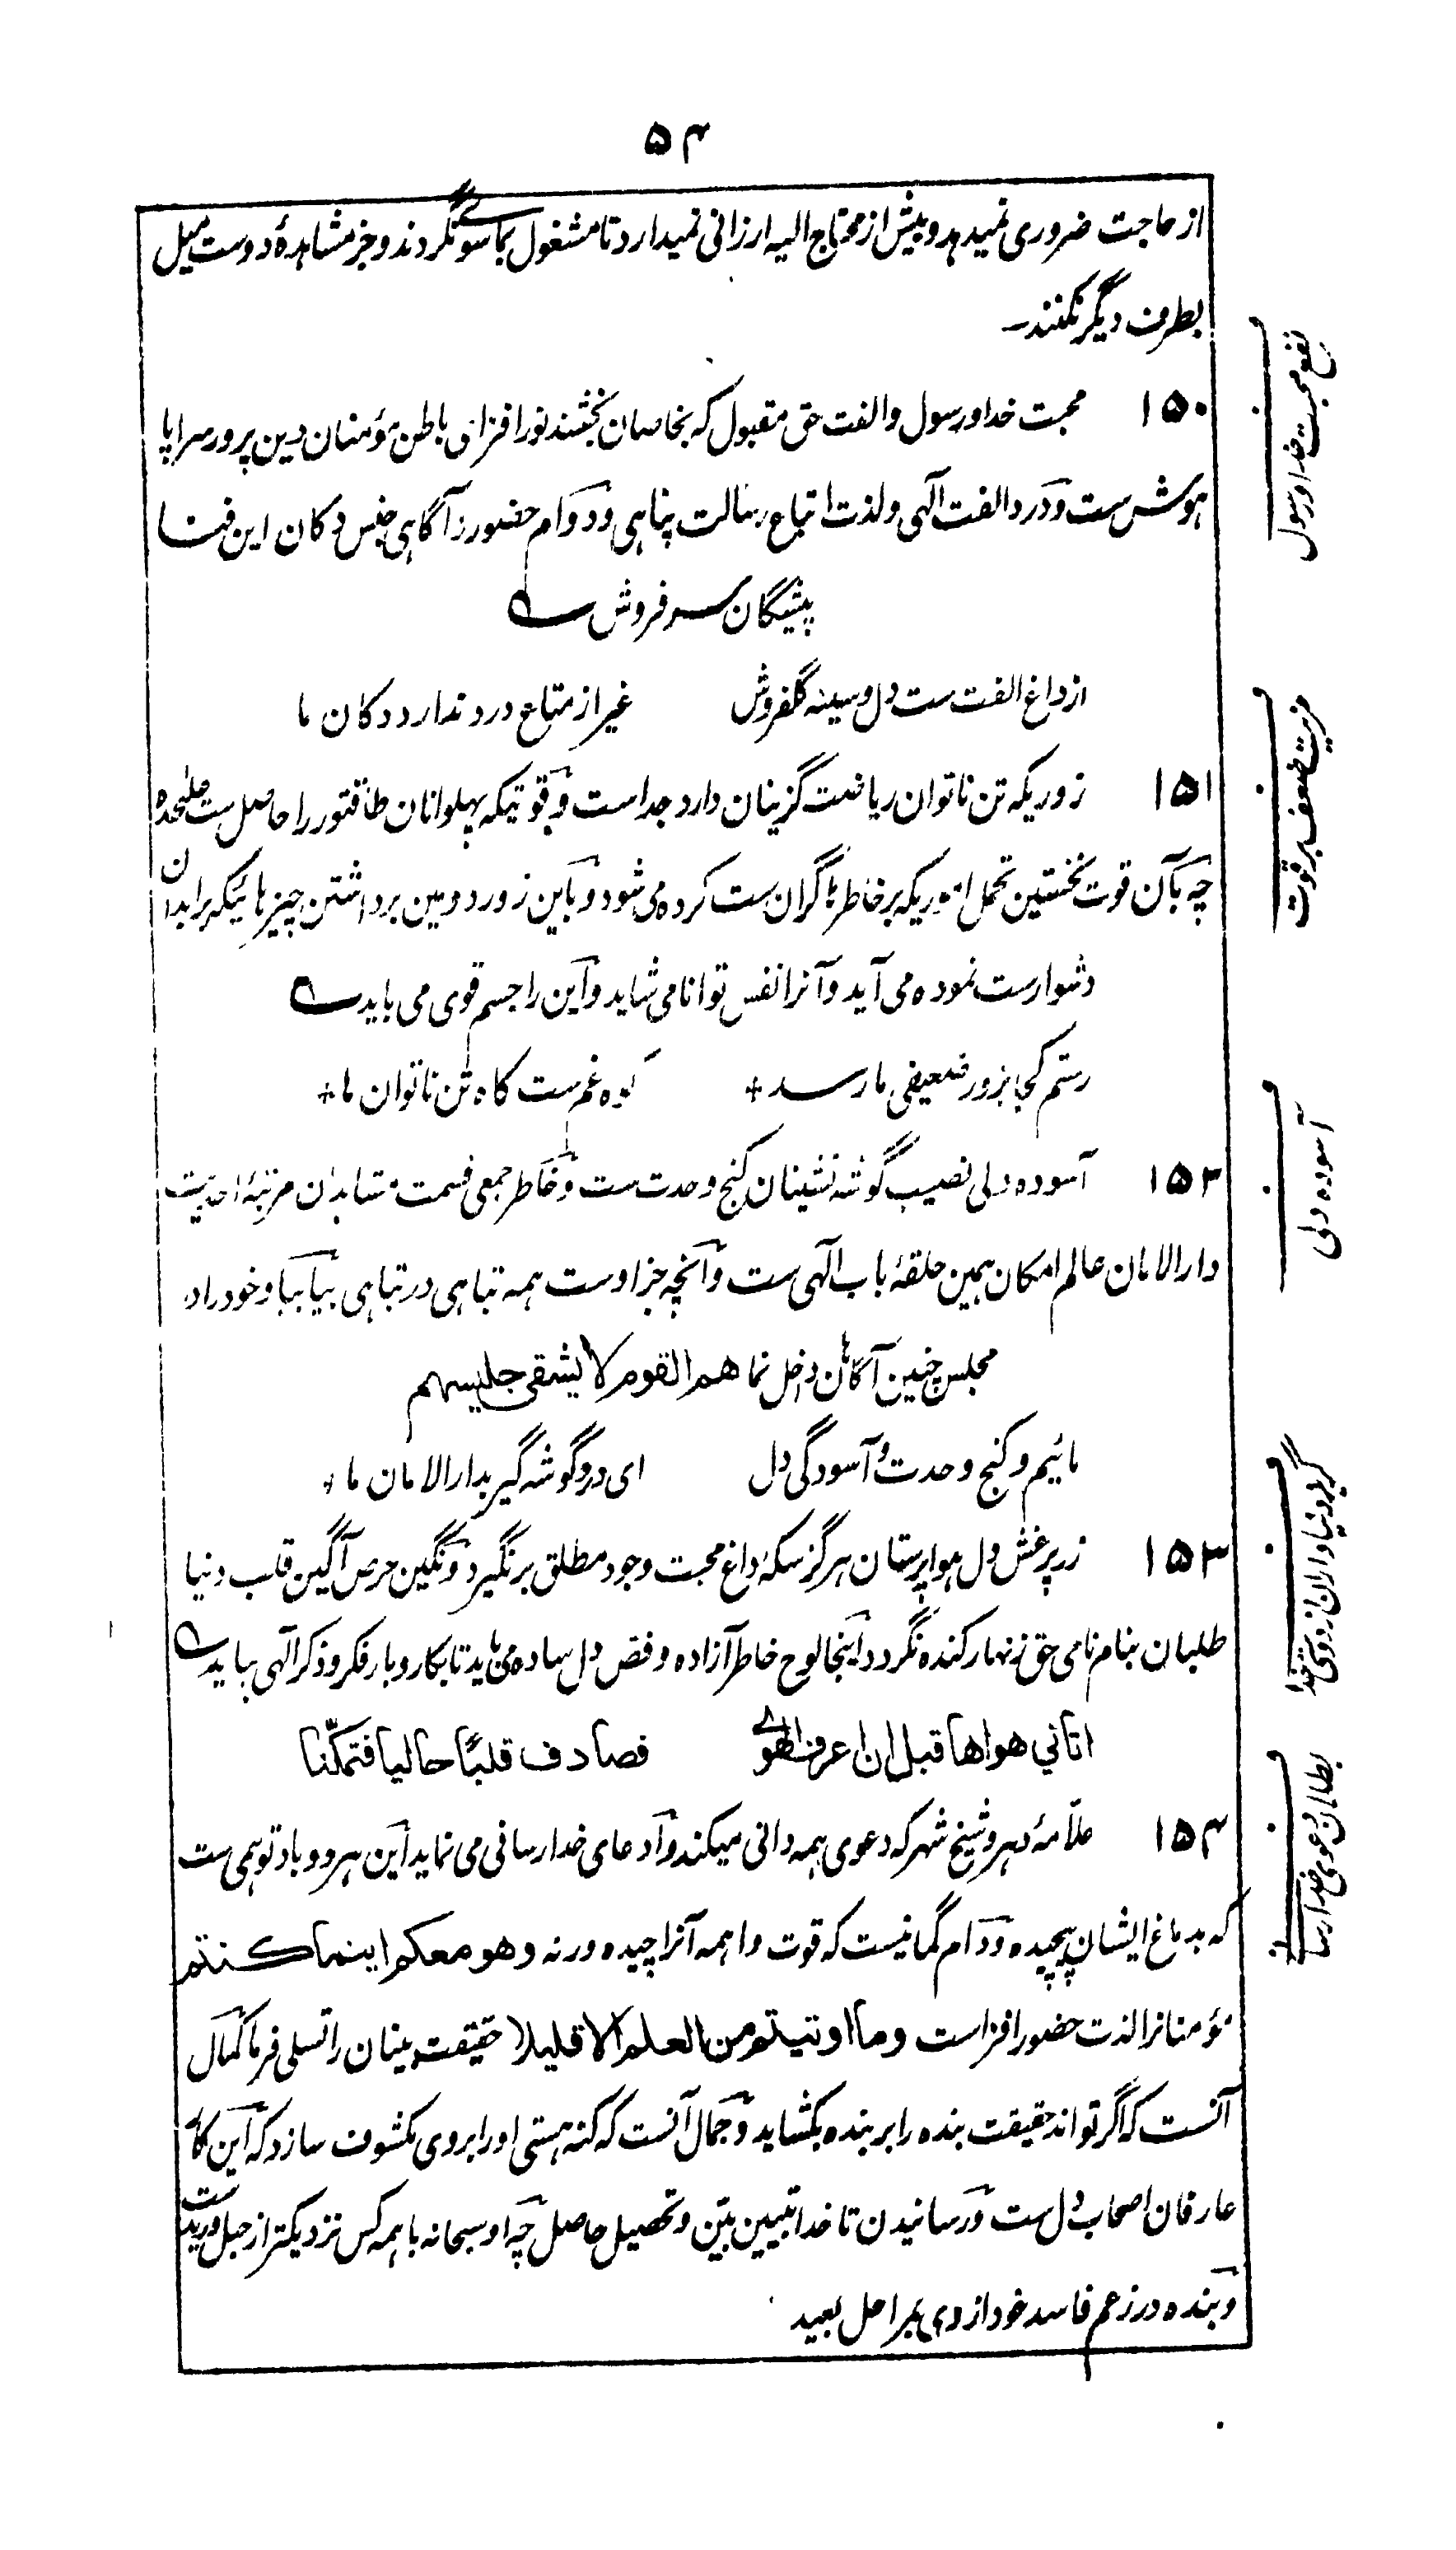 ۵۴
از حاجت ضروری نمیدهد و بیش از محتاج الیه ارزانی نمیدارد تا مشغول بماسوے نگردند و جز مشاهدهٔ دوست میل
بطرف دیگر نکنند۔
۱۵۰ محبت خدا و رسول و الفت حق مقبول که بخاصان بخشند نور افزای باطن مؤمنان دین پرور سراپا
هوش ست و درد الفت الٓهی ولذت اتباع رسالت پناهی و دوام حضور و آگاهی جنس دکان این فنا
پیشگان سرفروش ست
از داغ الفت ست دل و سینه گلفروش غیر از متاع درد ندارد دکان ما
۱۵۱ زوریکه تن ناتوان ریاضت گزینان دارد جداست و قوتیکه پهلوانان طاقتور را حاصل ست علیحده
چه بآن قوت نخستین تحمل اموریکه بر خاطرها گران ست کرده می شود و باین زور دومین برداشتن چیزهائیکه بر ابدان
دشوار ست نموده می آید و آنرا نفس توانا می شاید و این را جسم قوی می باید
رستم کجا بزور ضعیفی ما رسد + کوه غم ست کاه تن ناتوان ما +
۱۵۲ آسوده دلی نصیب گوشه نشینان کنج وحدت ست و خاطر جمعی قسمت مشاهدان مرتبهٔ احدیت
دارالامان عالم امکان همین حلقهٔ باب الٓهی ست و آنچه جز اوست همه تباهی در تباهی بیا بیا و خود را در
مجلس چنین آگاهان داخل نما هم القوم لا یشقی جلیسهم
مائیم و کنج وحدت و آسودگی دل ای درد گوشه گیر بدارالامان ما +
۱۵۳ زر پرغش دل هواپرستان هرگز سکهٔ داغ محبت وجود مطلق برنگیرد و نگین حرص آگین قلب دنیا
طلبان بنام نامی حق زنهار کنده نگردد اینجا لوح خاطر آزاده و فص دل ساده می باید تا بکار و بار فکر و ذکر الٓهی بیاید
اتانی هواها قبل ان اعرف الهوے فصادف قلبًا خالیا فتمکّنا
۱۵۴ علّامهٔ دهر و شیخ شهر که دعوی همه دانی میکند و ادعای خدا رسانی می نماید این هر دو باد توهمی ست
که بدماغ ایشان پیچیده و دام گمانیست که قوت واهمه آنرا چیده ورنه وهو معکم اینما کنتم
مؤمنانرا لذت حضور افزاست وما اوتیتم من العلم الا قلیلا حقیقت بینان را تسلی فرما کمال
آنست که اگر تواند حقیقت بنده را بر بنده بکشاید و جمال آنست که کنه هستی او را بروی مکشوف سازد که این کار
عارفان اصحاب دل ست و رسانیدن تا خدا تبیین بیّن و تحصیل حاصل چه او سبحانه با همه کس نزدیکتر از حبل ورید ست
و بنده در زعم فاسد خود از وی بمراحل بعید
نفع محبت خدا و رسول
مزیت ضعف بر قوت
آسوده دلی
گریز دنیاداران از دوستی خدا
بطلان دعوی خدا رسانی